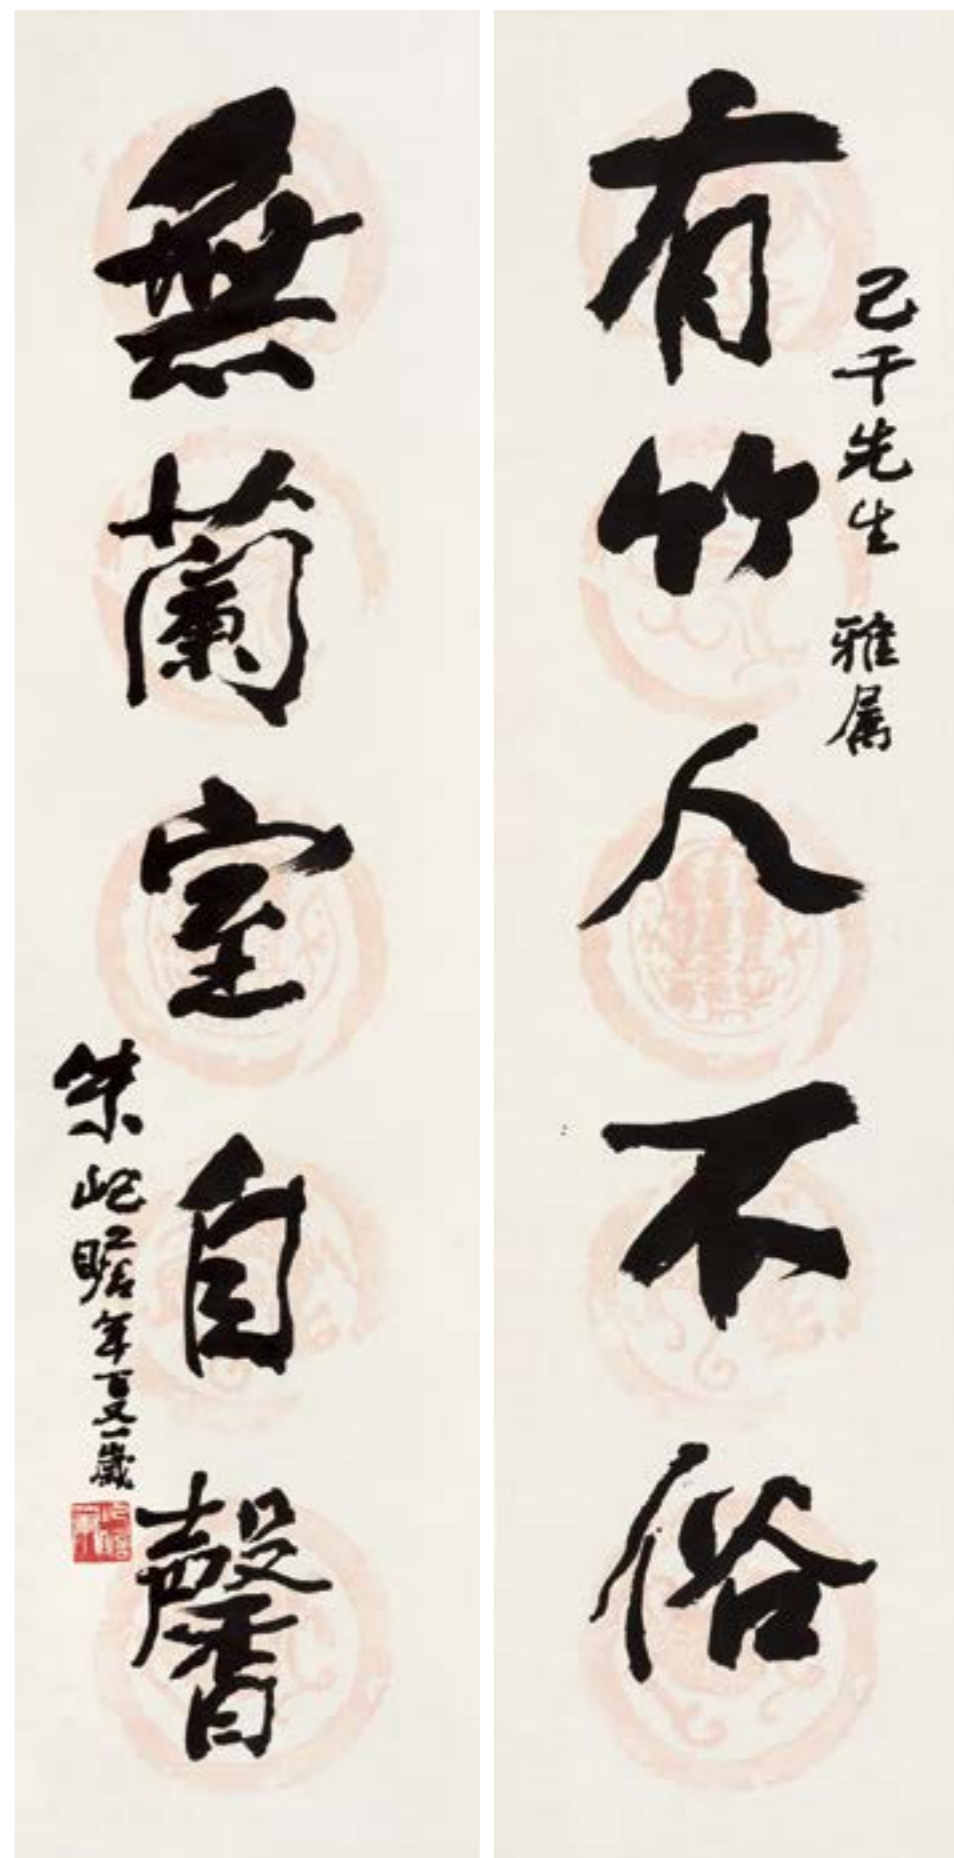 有竹人不俗
己千先生 雅属
無蘭室自馨
朱屺瞻年百又一歲